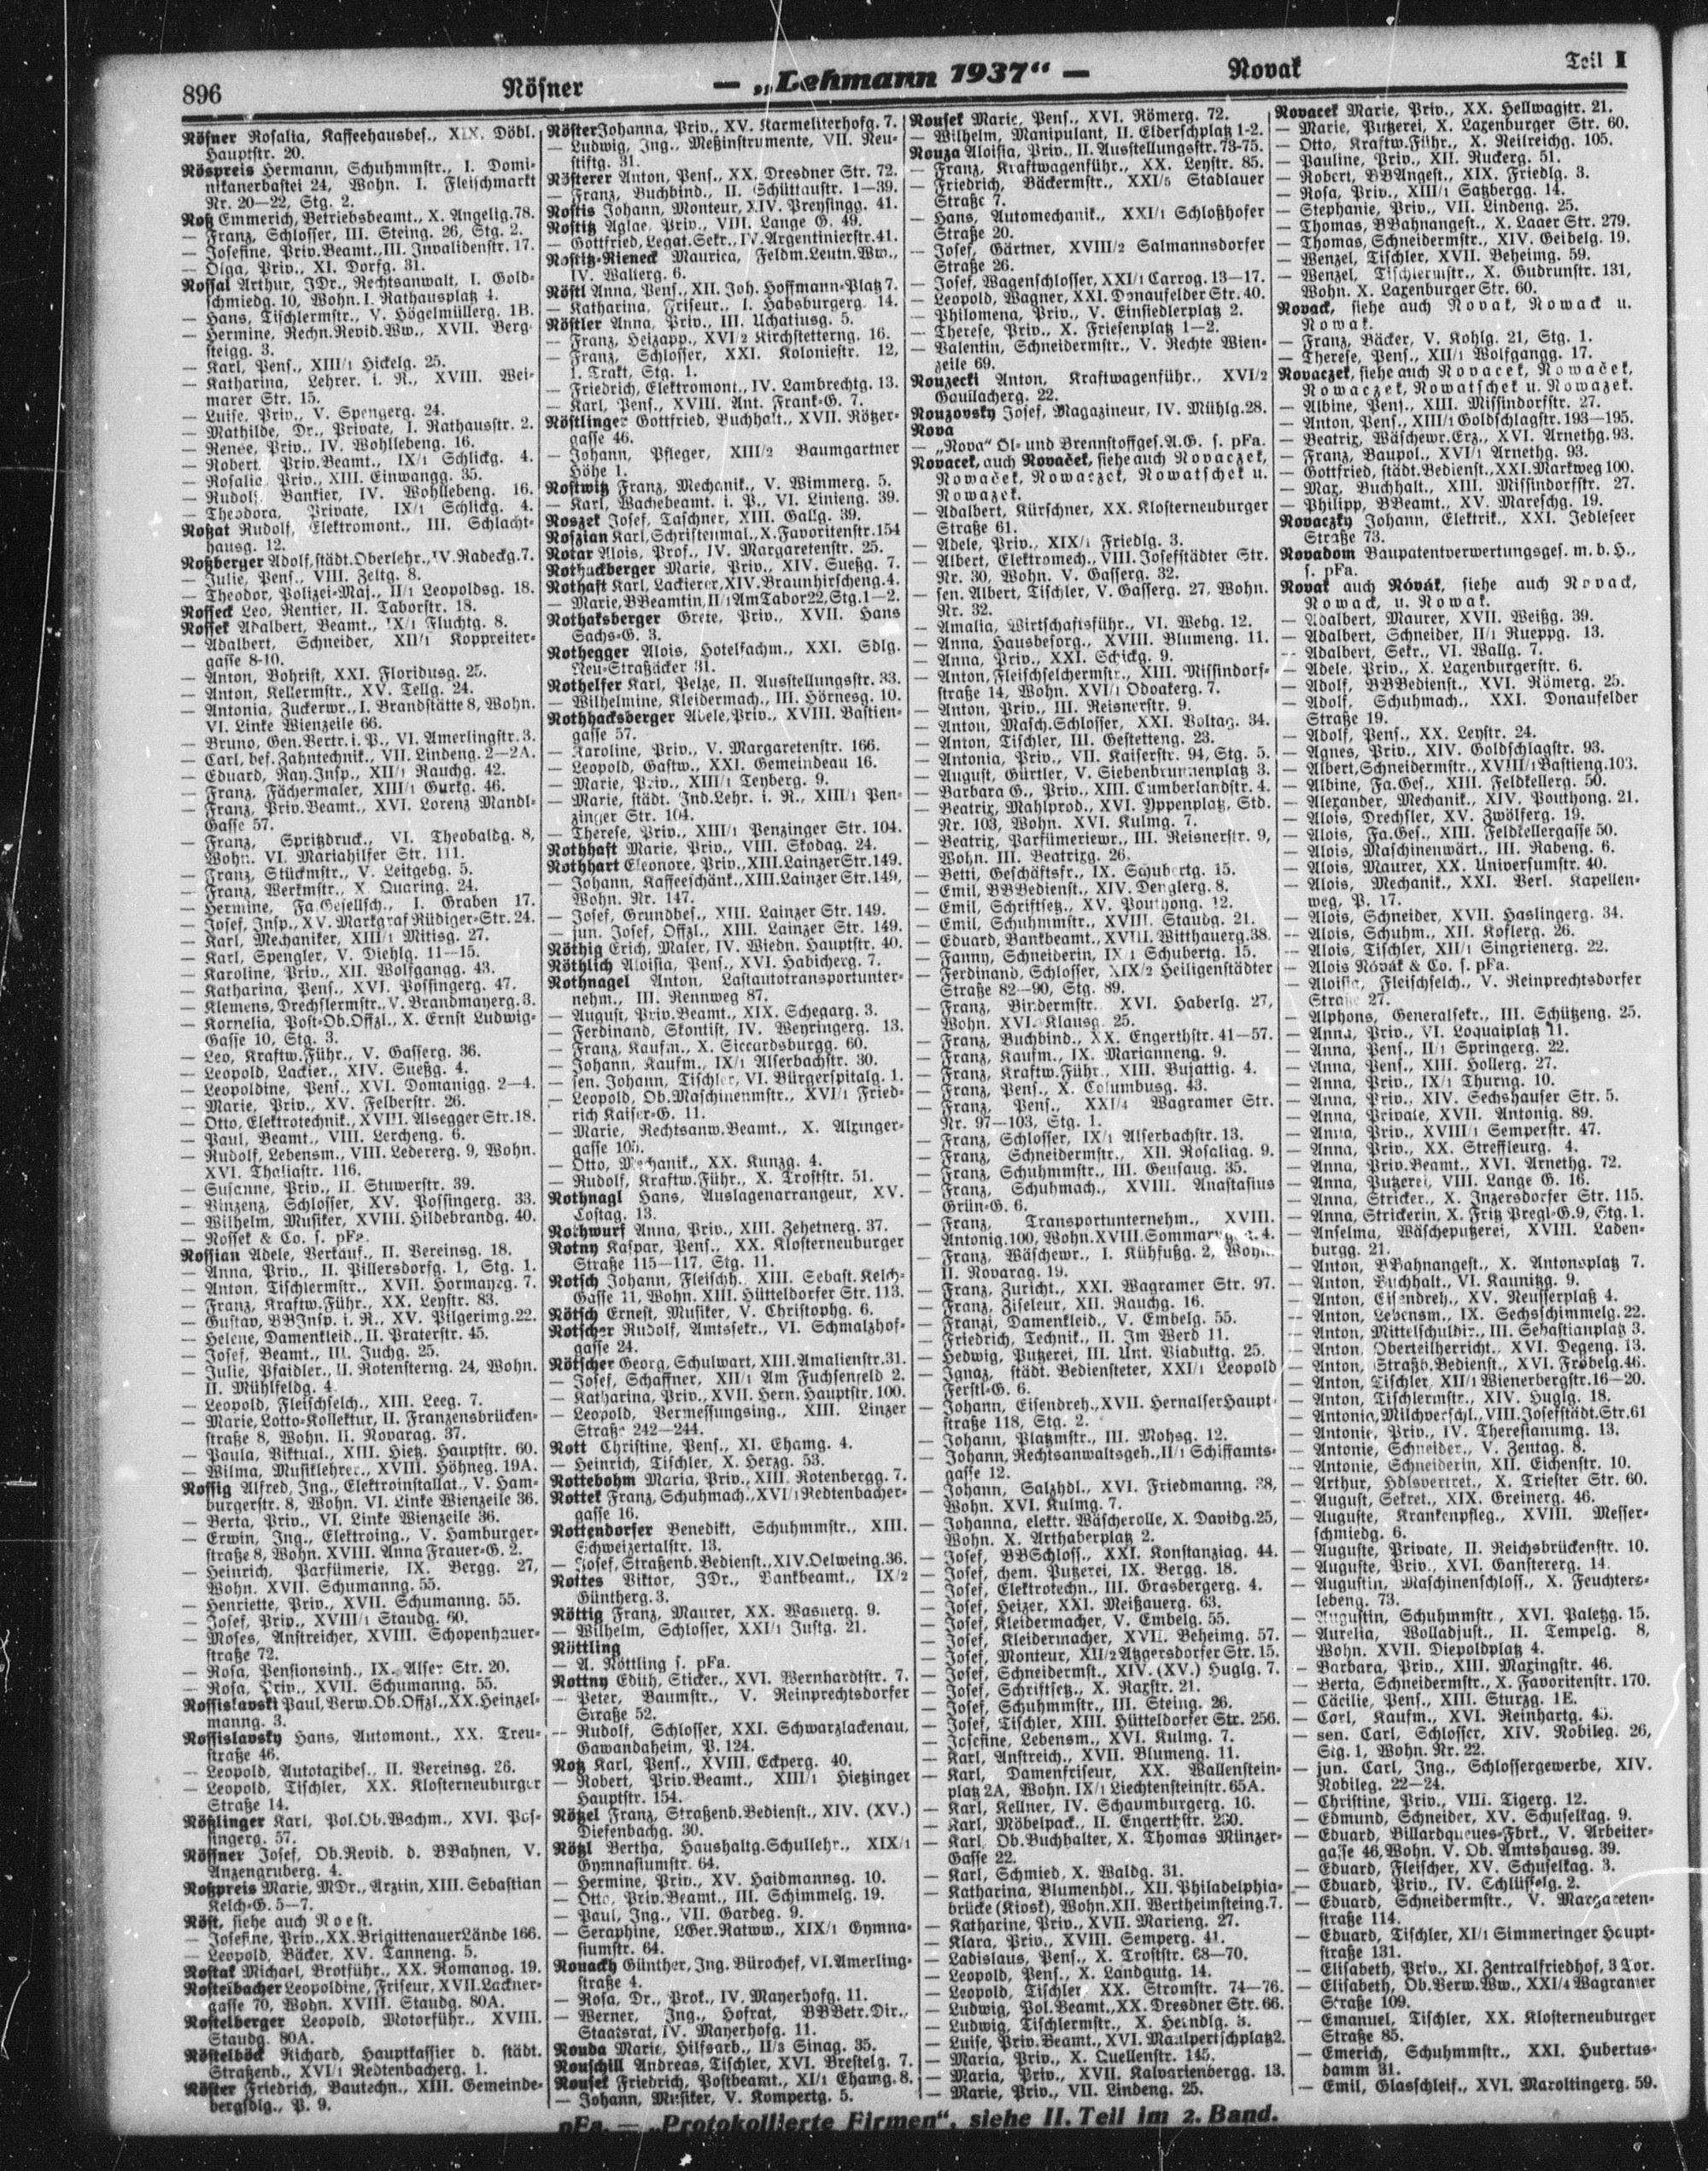 896
Nösner
— „Lehmann 1937“ —
Novak
Teil I
Nösner Rosalia, Kaffeehausbes., XIX. Döbl.
Hauptstr. 20.
Nöspreis Hermann, Schuhmmstr., I. Domi-
nikanerbastei 24, Wohn. I. Fleischmarkt
Nr. 20—22, Stg. 2.
Noß Emmerich, Betriebsbeamt., X. Angelig.78.
— Franz, Schlosser, III. Steing. 26, Stg. 2.
— Josefine, Priv.Beamt., III. Invalidenstr. 17.
— Olga, Priv., XI. Dorfg. 31.
Nossal Arthur, JDr., Rechtsanwalt, I. Gold-
schmiedg. 10, Wohn. I. Rathausplatz 4.
— Hans, Tischlermstr., V. Högelmüllerg. 1B.
— Hermine, Rechn.Revid.Ww., XVII. Berg-
steigg. 3.
— Karl, Pens., XIII/1 Hickelg. 25.
— Katharina, Lehrer. i. R., XVIII. Wei-
marer Str. 15.
— Luise, Priv., V. Spengerg. 24.
— Mathilde, Dr., Private, I. Rathausstr. 2.
— Renée, Priv., IV. Wohllebeng. 16.
— Robert, Priv.Beamt., IX/1 Schlickg. 4.
— Rosalie, Priv., XIII. Einwangg. 35.
— Rudolf, Bankier, IV. Wohllebeng. 16.
— Theodora, Private, IX/1 Schlickg. 4.
Noßat Rudolf, Elektromont., III. Schlacht-
hausg. 12.
Noßberger Adolf, städt.Oberlehr., IV. Radeckg.7.
— Julie, Pens., VIII. Zeltg. 8.
— Theodor, Polizei-Maj., II/1 Leopoldsg. 18.
Nosseck Leo, Rentier, II. Taborstr. 18.
Nossek Adalbert, Beamt., IX/1 Fluchtg. 8.
— Adalbert, Schneider, XII/1 Koppreiter-
gasse 8-10.
— Anton, Bohrist, XXI. Floridusg. 25.
— Anton, Kellermstr., XV. Tellg. 24.
— Antonia, Zuckerwr., I. Brandstätte 8, Wohn.
VI. Linke Wienzeile 66.
— Bruno, Gen.Vertr. i. P., VI. Amerlingstr. 3.
— Carl, bef. Zahntechnik., VII. Lindeng. 2—2A.
— Eduard, Ray.Insp., XII/1 Rauchg. 42.
— Franz, Fächermaler, XIII/1 Gurkg. 46.
— Franz, Priv.Beamt., XVI. Lorenz Mandl-
Gasse 57.
— Franz, Spritzdruck., VI. Theobaldg. 8,
Wohn. VI. Mariahilfer Str. 111.
— Franz, Stückmstr., V. Leitgebg. 5.
— Franz, Werkmstr., X. Quaring. 24.
— Hermine, Fa.Gesellsch., I. Graben 17.
— Josef, Insp., XV. Markgraf Rüdiger-Str. 24.
— Karl, Mechaniker, XIII/1 Mitisg. 27.
— Karl, Spengler, V. Diehlg. 11—15.
— Karoline, Priv., XII. Wolfgangg. 43.
— Katharina, Pens., XVI. Possingerg. 47.
— Klemens, Drechslermstr., V. Brandmayerg. 3.
— Kornelia, Post-Ob.Offzl., X. Ernst Ludwig-
Gasse 10, Stg. 3.
— Leo, Kraftw.Führ., V. Gasserg. 36.
— Leopold, Lackier., XIV. Sueßg. 4.
— Leopoldine, Pens., XVI. Domanigg. 2—4.
— Marie, Priv., XV. Felberstr. 26.
— Otto, Elektrotechnik., XVIII. Alsegger Str.18.
— Paul, Beamt., VIII. Lercheng. 6.
— Rudolf, Lebensm., VIII. Ledererg. 9, Wohn.
XVI. Thaliastr. 116.
— Susanne, Priv., II. Stuwerstr. 39.
— Vinzenz, Schlosser, XV. Possingerg. 33.
— Wilhelm, Musiker, XVIII. Hildebrandg. 40.
— Nossek & Co. s. pFa.
Nossian Adele, Verkäuf., II. Vereinsg. 18.
— Anna, Priv., II. Pillersdorfg. 1, Stg. 1.
— Anton, Tischlermstr., XVII. Hormayrg. 7.
— Franz, Kraftw.Führ., XX. Leystr. 83.
— Gustav, BBInsp. i. R., XV. Pilgerimg. 22.
— Helene, Damenkleid., II. Praterstr. 45.
— Josef, Beamt., III. Juchg. 25.
— Julie, Pfaidler., II. Rotensterng. 24, Wohn.
II. Mühlfeldg. 4.
— Leopold, Fleischselch., XIII. Leeg. 7.
— Marie, Lotto-Kollektur, II. Franzensbrücken-
straße 8, Wohn. II. Novarag. 37.
— Paula, Viktual., XIII. Hietz. Hauptstr. 60.
— Wilma, Musiklehrer., XVIII. Höhneg. 19A.
Nossig Alfred, Ing., Elektroinstallat., V. Ham-
burgerstr. 8, Wohn. VI. Linke Wienzeile 36.
— Berta, Priv., VI. Linke Wienzeile 36.
— Erwin, Ing., Elektroing., V. Hamburger-
straße 8, Wohn. XVIII. Anna Frauer-G. 2.
— Heinrich, Parfümerie, IX. Bergg. 27,
Wohn. XVII. Schumanng. 55.
— Henriette, Priv., XVII. Schumanng. 55.
— Josef, Priv., XVIII/1 Staudg. 60.
— Moses, Anstreicher, XVIII. Schopenhauer-
straße 72.
— Rosa, Pensionsinh., IX. Alser Str. 20.
— Rosa, Priv., XVII. Schumanng. 55.
Nossislavski Paul, Verw.Ob.Offzl., XX. Heinzel-
manng. 3.
Nossislavsky Hans, Automont., XX. Treu-
straße 46.
— Leopold, Autotaxibes., II. Vereinsg. 26.
— Leopold, Tischler, XX. Klosterneuburger
Straße 14.
Nößlinger Karl, Pol.Ob.Wachm., XVI. Pos-
singerg. 57.
Nössner Josef, Ob.Revid. d. BBahnen, V.
Anzengruberg. 4.
Noßpreis Marie, MDr., Ärztin, XIII. Sebastian
Kelch-G. 5—7.
Nöst, siehe auch Noest.
— Josefine, Priv., XX. Brigittenauer Lände 166.
— Leopold, Bäcker, XV. Tanneng. 5.
Nostak Michael, Brotführ., XX. Romanog. 19.
Nosteibacher Leopoldine, Friseur, XVII. Lackner-
gasse 70, Wohn. XVIII. Staudg. 80A.
Nostelberger Leopold, Motorführ., XVIII.
Staudg. 80A.
Nöstelböck Richard, Hauptkassier d. städt.
Straßenb., XVI/1 Redtenbacherg. 1.
Nöster Friedrich, Bautechn., XIII. Gemeinde-
bergsdlg., P. 9.
Nöster Johanna, Priv., XV. Karmeliterhofg. 7.
— Ludwig, Ing., Meßinstrumente, VII. Neu-
stiftg. 31.
Nösterer Anton, Pens., XX. Dresdner Str. 72.
— Franz, Buchbind., II. Schüttaustr. 1—39.
Nostis Johann, Monteur, XIV. Preysingg. 41.
Nostitz Aglae, Priv., VIII. Lange G. 49.
— Gottfried, Legat.Sekr., IV. Argentinierstr. 41.
Nostitz-Rieneck Maurica, Feldm.Leutn.Ww.,
IV. Wallerg. 6.
Nöstl Anna, Pens., XII. Joh. Hoffmann-Platz 7.
— Katharina, Friseur., I. Habsburgerg. 14.
Nöstler Anna, Priv., III. Uchatiusg. 5.
— Franz, Heizapp., XVI/2 Kirchstetterng. 16.
— Franz, Schlosser, XXI. Koloniestr. 12,
1. Trakt, Stg. 1.
— Friedrich, Elektromont., IV. Lambrechtg. 13.
— Karl, Pens., XVIII. Ant. Frank-G. 7.
Nöstlinger Gottfried, Buchhalt., XVII. Rötzer-
gasse 46.
— Johann, Pfleger, XIII/2 Baumgartner
Höhe 1.
Nostwitz Franz, Mechanik., V. Wimmerg. 5.
— Karl, Wachebeamt. i. P., VI. Linieng. 39.
Noszek Josef, Taschner, XIII. Gallg. 39.
Noszian Karl, Schriftenmal., X. Favoritenstr. 154
Notar Alois, Prof., IV. Margaretenstr. 25.
Nothackberger Marie, Priv., XIV. Sueßg. 7.
Nothaft Karl, Lackierer, XIV. Braunhirscheng. 4.
— Marie, BBeamtin, II/1 Am Tabor 22, Stg. 1—2.
Nothaksberger Grete, Priv., XVII. Hans
Sachs-G. 3.
Nothegger Alois, Hotelfachm., XXI. Sdlg.
Neu-Straßäcker 31.
Nothelfer Karl, Pelze, II. Ausstellungsstr. 33.
— Wilhelmine, Kleidermach., III. Hörnesg. 10.
Nothhacksberger Adele, Priv., XVIII. Bastien-
gasse 57.
— Karoline, Priv., V. Margaretenstr. 166.
— Leopold, Gastw., XXI. Gemeindeau 16.
— Marie, Priv., XIII/1 Teyberg. 9.
— Marie, städt. Ind.Lehr. i. R., XIII/1 Pen-
zinger Str. 104.
— Therese, Priv., XIII/1 Penzinger Str. 104.
Nothhaft Marie, Priv., VIII. Skodag. 24.
Nothhart Eleonore, Priv., XIII. Lainzer Str. 149.
— Johann, Kaffeeschänk., XIII. Lainzer Str. 149,
Wohn. Nr. 147.
— Josef, Grundbes., XIII. Lainzer Str. 149.
— jun. Josef, Offzl., XIII. Lainzer Str. 149.
Nöthig Erich, Maler, IV. Wiedn. Hauptstr. 40.
Nöthlich Aloisia, Pens., XVI. Habicherg. 7.
Nothnagel Anton, Lastautotransportunter-
nehm., III. Rennweg 87.
— August, Priv.Beamt., XIX. Schegarg. 3.
— Ferdinand, Skontist, IV. Weyringerg. 13.
— Franz, Kaufm., X. Siccardsburgg. 60.
— Johann, Kaufm., IX/1 Alserbachstr. 30.
— sen. Johann, Tischler, VI. Bürgerspitalg. 1.
— Leopold, Ob.Maschinenmstr., XVI/1 Fried-
rich Kaiser-G. 11.
— Marie, Rechtsanw.Beamt., X. Alxinger-
gasse 105.
— Otto, Mechanik., XX. Kunzg. 4.
— Rudolf, Kraftw.Führ., X. Troststr. 51.
Nothnagl Hans, Auslagenarrangeur, XV.
Costag. 13.
Nothwurf Anna, Priv., XIII. Zehetnerg. 37.
Notny Kaspar, Pens., XX. Klosterneuburger
Straße 115—117, Stg. 11.
Notsch Johann, Fleischh., XIII. Sebast. Kelch-
Gasse 11, Wohn. XIII. Hütteldorfer Str. 113.
Nötsch Ernest, Musiker, V. Christophg. 6.
Notscher Rudolf, Amtssekr., VI. Schmalzhof-
gasse 24.
Nötscher Georg, Schulwart, XIII. Amalienstr. 31.
— Josef, Schaffner, XII/1 Am Fuchsenfeld 2.
— Katharina, Priv., XVII. Hern. Hauptstr. 100.
— Leopold, Vermessungsing., XIII. Linzer
Straße 242—244.
Nott Christine, Pens., XI. Ehamg. 4.
— Heinrich, Tischler, X. Herzg. 53.
Nottebohm Maria, Priv., XIII. Rotenbergg. 7.
Nottek Franz, Schuhmach., XVI/1 Redtenbacher-
gasse 16.
Nottendorfer Benedikt, Schuhmmstr., XIII.
Schweizertalstr. 13.
— Josef, Straßenb.Bedienst., XIV. Oelweing. 36.
Nottes Viktor, JDr., Bankbeamt., IX/2
Güntherg. 3.
Nöttig Franz, Maurer, XX. Wasnerg. 9.
— Wilhelm, Schlosser, XXI/1 Justg. 21.
Nöttling
— A. Nöttling s. pFa.
Nottny Edith, Sticker., XVI. Wernhardtstr. 7.
— Peter, Baumstr., V. Reinprechtsdorfer
Straße 52.
— Rudolf, Schlosser, XXI. Schwarzlackenau,
Gawandaheim, P. 124.
Notz Karl, Pens., XVIII. Eckperg. 40.
— Robert, Priv.Beamt., XIII/1 Hietzinger
Hauptstr. 154.
Nötzel Franz, Straßenb.Bedienst., XIV. (XV.)
Diefenbachg. 30.
Nötzl Bertha, Haushaltg.Schullehr., XIX/1
Gymnasiumstr. 64.
— Hermine, Priv., XV. Haidmannsg. 10.
— Otto, Priv.Beamt., III. Schimmelg. 19.
— Paul, Ing., VII. Gardeg. 9.
— Seraphine, LGer.Ratww., XIX/1 Gymna-
siumstr. 64.
Nouackh Günther, Ing. Bürochef, VI. Amerling-
straße 4.
— Rosa, Dr., Prof., IV. Mayerhofg. 11.
— Werner, Ing., Hofrat, BBBetr.Dir.,
Staatsrat, IV. Mayerhofg. 11.
Nouda Marie, Hilfsarb., II/3 Sinag. 35.
Nouschill Andreas, Tischler, XVI. Brestelg. 7.
Nousek Friedrich, Postbeamt., XI/1 Ehamg. 8.
— Johann, Musiker, V. Kompertg. 5.
Nousek Marie, Pens., XVI. Römerg. 72.
— Wilhelm, Manipulant, II. Elderschplatz 1-2.
Nouza Aloisia, Priv., II. Ausstellungsstr. 73-75.
— Franz, Kraftwagenführ., XX. Leystr. 85.
— Friedrich, Bäckermstr., XXI/5 Stadlauer
Straße 7.
— Hans, Automechanik., XXI/1 Schloßhofer
Straße 20.
— Josef, Gärtner, XVIII/2 Salmannsdorfer
Straße 26.
— Josef, Wagenschlosser, XXI/1 Carrog. 13—17.
— Leopold, Wagner, XXI. Donaufelder Str. 40.
— Philomena, Priv., V. Einsiedlerplatz 2.
— Therese, Priv., X. Friesenplatz 1—2.
— Valentin, Schneidermstr., V. Rechte Wien-
zeile 69.
Nouzecki Anton, Kraftwagenführ., XVI/2
Gaullacherg. 22.
Nouzovsky Josef, Magazineur, IV. Mühlg. 28.
Nova
— „Nova“ Öl- und Brennstoffges. A.G. s. pFa.
Novacek, auch Novaček, siehe auch Novaczek,
Nowaček, Nowaczek, Nowatschek u.
Nowazek.
— Adalbert, Kürschner, XX. Klosterneuburger
Straße 61.
— Adele, Priv., XIX/1 Friedlg. 3.
— Albert, Elektromech., VIII. Josefstädter Str.
Nr. 30, Wohn. V. Gasserg. 32.
— sen. Albert, Tischler, V. Gasserg. 27, Wohn.
Nr. 32.
— Amalia, Wirtschaftsführ., VI. Webg. 12.
— Anna, Hausbesorg., XVIII. Blumeng. 11.
— Anna, Priv., XXI. Schickg. 9.
— Anton, Fleischselchermstr., XIII. Missindorf-
straße 14, Wohn. XVI/1 Odoakerg. 7.
— Anton, Priv., III. Reisnerstr. 9.
— Anton, Masch.Schlosser, XXI. Voltag. 34.
— Anton, Tischler, III. Gestetteng. 23.
— Antonia, Priv., VII. Kaiserstr. 94, Stg. 5.
— August, Gürtler, V. Siebenbrunnenplatz 3.
— Barbara G., Priv., XIII. Cumberlandstr. 4.
— Beatrix, Mahlprod., XVI. Yppenplatz, Std.
Nr. 103, Wohn. XVI. Kulmg. 7.
— Beatrix, Parfümeriewr., III. Reisnerstr. 9,
Wohn. III. Beatrixg. 26.
— Betti, Geschäftsfr., IX. Schubertg. 15.
— Emil, BBBedienst., XIV. Denglerg. 8.
— Emil, Schriftsetz., XV. Pouthong. 12.
— Emil, Schuhmmstr., XVIII. Staudg. 21.
— Eduard, Bankbeamt., XVIII. Witthauerg. 38.
— Fanny, Schneiderin, IX/1 Schubertg. 15.
— Ferdinand, Schlosser, XIX/2 Heiligenstädter
Straße 82—90, Stg. 89.
— Franz, Bindermstr., XVI. Haberlg. 27,
Wohn. XVI. Klausg. 25.
— Franz, Buchbind., XX. Engerthstr. 41—57.
— Franz, Kaufm., IX. Marianneng. 9.
— Franz, Kraftw.Führ., XIII. Bujattig. 4.
— Franz, Pens., X. Columbusg. 43.
— Franz, Pens., XXI/4 Wagramer Str.
Nr. 97—103, Stg. 1.
— Franz, Schlosser, IX/1 Alserbachstr. 13.
— Franz, Schneidermstr., XII. Rosaliag. 9.
— Franz, Schuhmmstr., III. Geusaug. 35.
— Franz, Schuhmach., XVIII. Anastasius
Grün-G. 6.
— Franz, Transportunternehm., XVIII.
Antonig. 100, Wohn. XVIII. 4.
— Franz, Wäschewr., I. Kühfußg. 2, Wohn.
II. Novarag. 19.
— Franz, Zuricht., XXI. Wagramer Str. 97.
— Franz, Ziseleur, XII. Rauchg. 16.
— Franzi, Damenkleid., V. Embelg. 55.
— Friedrich, Technik., II. Im Werd 11.
— Hedwig, Putzerei, III. Unt. Viaduktg. 25.
— Ignaz, städt. Bediensteter, XXI/1 Leopold
Ferstl-G. 6.
— Johann, Eisendreh., XVII. Hernalser Haupt-
straße 118, Stg. 2.
— Johann, Platzmstr., III. Mohsg. 12.
— Johann, Rechtsanwaltsgeh., II/1 Schiffamts-
gasse 12.
— Johann, Salzhdl., XVI. Friedmanng. 38,
Wohn. XVI. Kulmg. 7.
— Johanna, elektr. Wäscherolle, X. Davidg. 25,
Wohn. X. Arthaberplatz 2.
— Josef, BBSchloss., XXI. Konstanziag. 44.
— Josef, chem. Putzerei, IX. Bergg. 18.
— Josef, Elektrotechn., III. Grasbergerg. 4.
— Josef, Heizer, XXI. Meißauerg. 63.
— Josef, Kleidermacher, V. Embelg. 55.
— Josef, Kleidermacher, XVII. Beheimg. 57.
— Josef, Monteur, XII/2 Atzgersdorfer Str. 15.
— Josef, Schneidermst., XIV. (XV.) Huglg. 7.
— Josef, Schriftsetz., X. Raxstr. 21.
— Josef, Schuhmmstr., III. Steing. 26.
— Josef, Tischler, XIII. Hütteldorfer Str. 256.
— Josefine, Lebensm., XVI. Kulmg. 7.
— Karl, Anstreich., XVII. Blumeng. 11.
— Karl, Damenfriseur, XX. Wallenstein-
platz 2A, Wohn. IX/1 Liechtensteinstr. 65A.
— Karl, Kellner, IV. Schaumburgerg. 16.
— Karl, Möbelpack., II. Engerthstr. 230.
— Karl, Ob.Buchhalter, X. Thomas Münzer-
Gasse 22.
— Karl, Schmied, X. Waldg. 31.
— Katharina, Blumenhdl., XII. Philadelphia-
brücke (Kiosk), Wohn. XII. Wertheimsteing. 7.
— Katharine, Priv., XVII. Marieng. 27.
— Klara, Priv., XVIII. Semperg. 41.
— Ladislaus, Pens., X. Troststr. 68—70.
— Leopold, Pens., X. Landgutg. 14.
— Leopold, Tischler, XX. Stromstr. 74—76.
— Ludwig, Pol.Beamt., XX. Dresdner Str. 66.
— Ludwig, Tischlermstr., X. Hezindlg. 3.
— Luise, Priv.Beamt., XVI. Maulpertschplatz 2.
— Maria, Priv., X. Quellenstr. 145.
— Maria, Priv., XVII. Kalvarienbergg. 13.
— Marie, Priv., VII. Lindeng. 25.
Novacek Marie, Priv., XX. Hellwagstr. 21.
— Marie, Putzerei, X. Laxenburger Str. 60.
— Otto, Kraftw.Führ., X. Neilreichg. 105.
— Pauline, Priv., XII. Ruckerg. 51.
— Robert, BBAngest., XIX. Friedlg. 3.
— Rosa, Priv., XIII/1 Satzbergg. 14.
— Stephanie, Priv., VII. Lindeng. 25.
— Thomas, BBahnangest., X. Laaer Str. 279.
— Thomas, Schneidermstr., XIV. Geibelg. 19.
— Wenzel, Tischler, XVII. Beheimg. 59.
— Wenzel, Tischlermstr., X. Gudrunstr. 131,
Wohn. X. Laxenburger Str. 60.
Novack, siehe auch Novak, Nowack u.
Nowak.
— Franz, Bäcker, V. Kohlg. 21, Stg. 1.
— Therese, Pens., XII/1 Wolfgangg. 17.
Novaczek, siehe auch Novacek, Nowaček,
Nowaczek, Nowatschek u. Nowazek.
— Albine, Pens., XIII. Missindorfstr. 27.
— Anton, Pens., XIII/1 Goldschlagstr. 193—195.
— Beatrix, Wäschewr.Erz., XVI. Arnethg. 93.
— Franz, Baupol., XVI/1 Arnethg. 93.
— Gottfried, städt.Bedienst., XXI. Markweg 100.
— Max, Buchhalt., XIII. Missindorfstr. 27.
— Philipp, BBeamt., XV. Mareschg. 19.
Novaczky Johann, Elektrik., XXI. Jedleseer
Straße 73.
Novadom Baupatentverwertungsges. m. b. H.,
s. pFa.
Novak auch Nóvák, siehe auch Novack,
Nowack, u. Nowak.
— Adalbert, Maurer, XVII. Weißg. 39.
— Adalbert, Schneider, II/1 Rueppg. 13.
— Adalbert, Sekr., VI. Wallg. 7.
— Adele, Priv., X. Laxenburgerstr. 6.
— Adolf, BBBedienst., XVI. Römerg. 25.
— Adolf, Schuhmach., XXI. Donaufelder
Straße 19.
— Adolf, Pens., XX. Leystr. 24.
— Agnes, Priv., XIV. Goldschlagstr. 93.
— Albert, Schneidermstr., XVIII/1 Bastieng. 103.
— Albine, Fa.Ges., XIII. Feldkellerg. 50.
— Alexander, Mechanik., XIV. Pouthong. 21.
— Alois, Drechsler, XV. Zwölferg. 19.
— Alois, Fa.Ges., XIII. Feldkellergasse 50.
— Alois, Maschinenwärt., III. Rabeng. 6.
— Alois, Maurer, XX. Universumstr. 40.
— Alois, Mechanik., XXI. Verl. Kapellen-
weg, P. 17.
— Alois, Schneider, XVII. Haslingerg. 34.
— Alois, Schuhm., XII. Koflerg. 26.
— Alois, Tischler, XII/1 Singrienerg. 22.
— Alois Nóvák & Co. s. pFa.
— Aloisia, Fleischselch., V. Reinprechtsdorfer
Straße 27.
— Alphons, Generalsekr., III. Schützeng. 25.
— Anna, Priv., VI. Loquaiplatz 11.
— Anna, Pens., II/1 Springerg. 22.
— Anna, Pens., XIII. Hollerg. 27.
— Anna, Priv., IX/1 Thurng. 10.
— Anna, Priv., XIV. Sechshauser Str. 5.
— Anna, Private, XVII. Antonig. 89.
— Anna, Priv., XVIII/1 Semperstr. 47.
— Anna, Priv., XX. Streffleurg. 4.
— Anna, Priv.Beamt., XVI. Arnethg. 72.
— Anna, Putzerei, VIII. Lange G. 16.
— Anna, Stricker., X. Inzersdorfer Str. 115.
— Anna, Strickerin, X. Fritz Pregl-G. 9, Stg. 1.
— Anselma, Wäscheputzerei, XVIII. Laden-
burgg. 21.
— Anton, BBahnangest., X. Antonsplatz 7.
— Anton, Buchhalt., VI. Kaunitzg. 9.
— Anton, Eisendreh., XV. Neusserplatz 4.
— Anton, Lebensm., IX. Sechsschimmelg. 22.
— Anton, Mittelschuldir., III. Sebastianplatz 3.
— Anton, Oberteilherricht., XVI. Degeng. 13.
— Anton, Straßb.Bedienst., XVI. Fröbelg. 46.
— Anton, Tischler, XII/1 Wienerbergstr. 16—20.
— Anton, Tischlermstr., XIV. Huglg. 18.
— Antonia, Milchverschl., VIII. Josefstädt.Str. 61
— Antonie, Priv., IV. Theresianumg. 13.
— Antonie, Schneider., V. Zentag. 8.
— Antonie, Schneiderin, XII. Eichenstr. 10.
— Arthur, Hdlsvertret., X. Triester Str. 60.
— August, Sekret., XIX. Greinerg. 46.
— Auguste, Krankenpfleg., XVIII. Messer-
schmiedg. 6.
— Auguste, Private, II. Reichsbrückenstr. 10.
— Auguste, Priv., XVI. Ganstererg. 14.
— Augustin, Maschinenschloss., X. Feuchters-
lebeng. 73.
— Augustin, Schuhmmstr., XVI. Paletzg. 15.
— Aurelia, Wolladjust., II. Tempelg. 8,
Wohn. XVII. Diepoldplatz 4.
— Barbara, Priv., XIII. Maxingstr. 46.
— Berta, Schneidermstr., X. Favoritenstr. 170.
— Cäcilie, Pens., XIII. Sturzg. 1E.
— Carl, Kaufm., XVI. Reinhartg. 45.
— sen. Carl, Schlosser, XIV. Nobileg. 26,
Stg. 1, Wohn. Nr. 22.
— jun. Carl, Ing., Schlossergewerbe, XIV.
Nobileg. 22—24.
— Christine, Priv., VIII. Tigerg. 12.
— Edmund, Schneider, XV. Schuselkag. 9.
— Eduard, Billardqueues-Fbrk., V. Arbeiter-
gasse 46, Wohn. V. Ob. Amtshausg. 39.
— Eduard, Fleischer, XV. Schuselkag. 3.
— Eduard, Priv., IV. Schlüsselg. 2.
— Eduard, Schneidermstr., V. Margareten-
straße 114.
— Eduard, Tischler, XI/1 Simmeringer Haupt-
straße 131.
— Elisabeth, Priv., XI. Zentralfriedhof, 3 Tor.
— Elisabeth, Ob.Verw.Ww., XXI/4 Wagramer
Straße 109.
— Emanuel, Tischler, XX. Klosterneuburger
Straße 85.
— Emerich, Schuhmmstr., XXI. Hubertus-
damm 31.
— Emil, Glasschleif., XVI. Maroltingerg. 59.
pFa. — „Protokollierte Firmen“, siehe II. Teil im 2. Band.